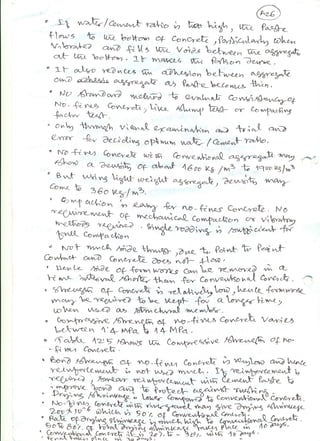 A26
• If water/cement ratio is too high, the paste
flows to the bottom of concrete, particularly when
vibrated and fills the voids between the aggregate
at the bottom. It makes the portion dense.
• It also reduces the adhesion between aggregate
and aggregate as paste becomes thin.
• No standard method to evaluate consistency of
No-fines concrete, like slump test or compacting
factor test.
• only through visual examination and trial and
error for deciding optimum water/cement ratio.
• No-fines concrete with conventional aggregate may
show a density of about 1600 kg/m3 to 1900 kg/m3
• But using light weight aggregate, density may
come to 360 kg/m3.
• compaction is easy for no-fines concrete. No
requirement of mechanical compaction or vibratory
methods required. Simple rodding is sufficient for
full compaction
• Not much side thrust, due to point to point
contact and concrete does not flow.
• Hence side of formworks can be removed in a
time interval shorter than for conventional concrete.
• Strength of concrete is relatively low, hence formwork
may be required to be kept for a longer time,
when used as structural member.
• compressive strength of no-fines concrete varies
between 1.4 MPa to 14 MPa.
• Table 12.5 shows the compressive strength of no-
fines concrete.
• Bond strength of no-fines concrete is very low and hence
reinforcement is not used much. If reinforcement is
required, smear reinforcement with cement paste to
improve bond and to protect against rusting.
• Drying shrinkage is lower compared to conventional concrete.
• No-fines concrete with river gravel may give drying shrinkage
200x10-6 which is 50% of conventional concrete
• Rate of drying shrinkage is much high to conventional concrete.
50 to 80% of total drying shrinkage takes place in 10 days.
• Conventional concrete it is 20% to 30% with 10 days